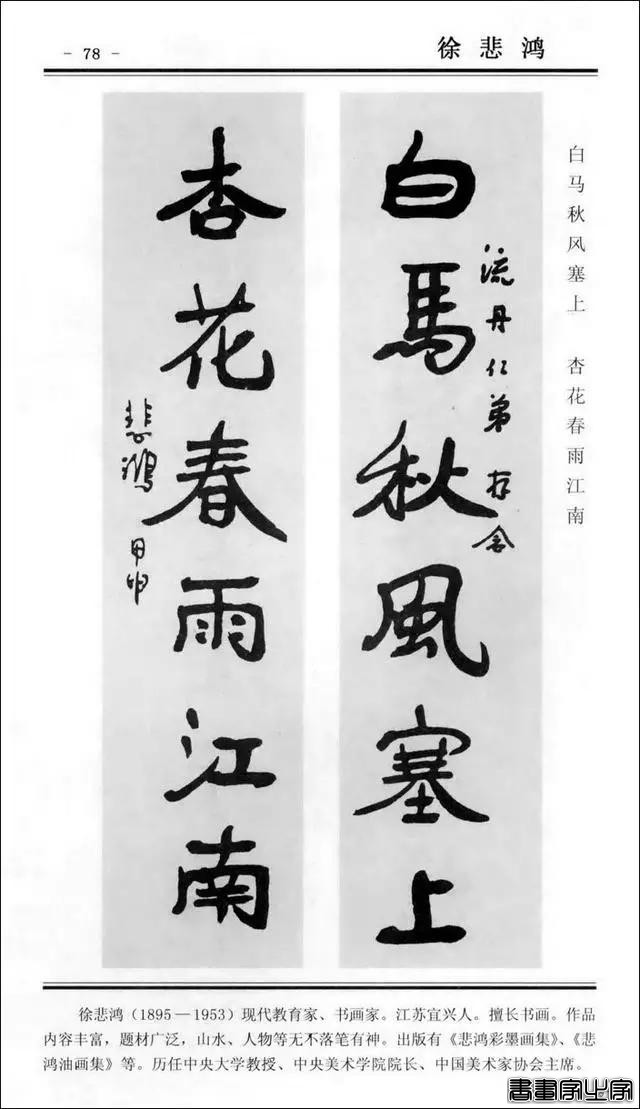 - 78 -
徐悲鸿
白马秋风塞上 杏花春雨江南
白馬秋風塞上
流丹仁弟存念
杏花春雨江南
悲鴻 甲申
徐悲鸿（1895—1953）现代教育家、书画家。江苏宜兴人。擅长书画。作品
内容丰富，题材广泛，山水、人物等无不落笔有神。出版有《悲鸿彩墨画集》、《悲
鸿油画集》等。历任中央大学教授、中央美术学院院长、中国美术家协会主席。
書畫家之家